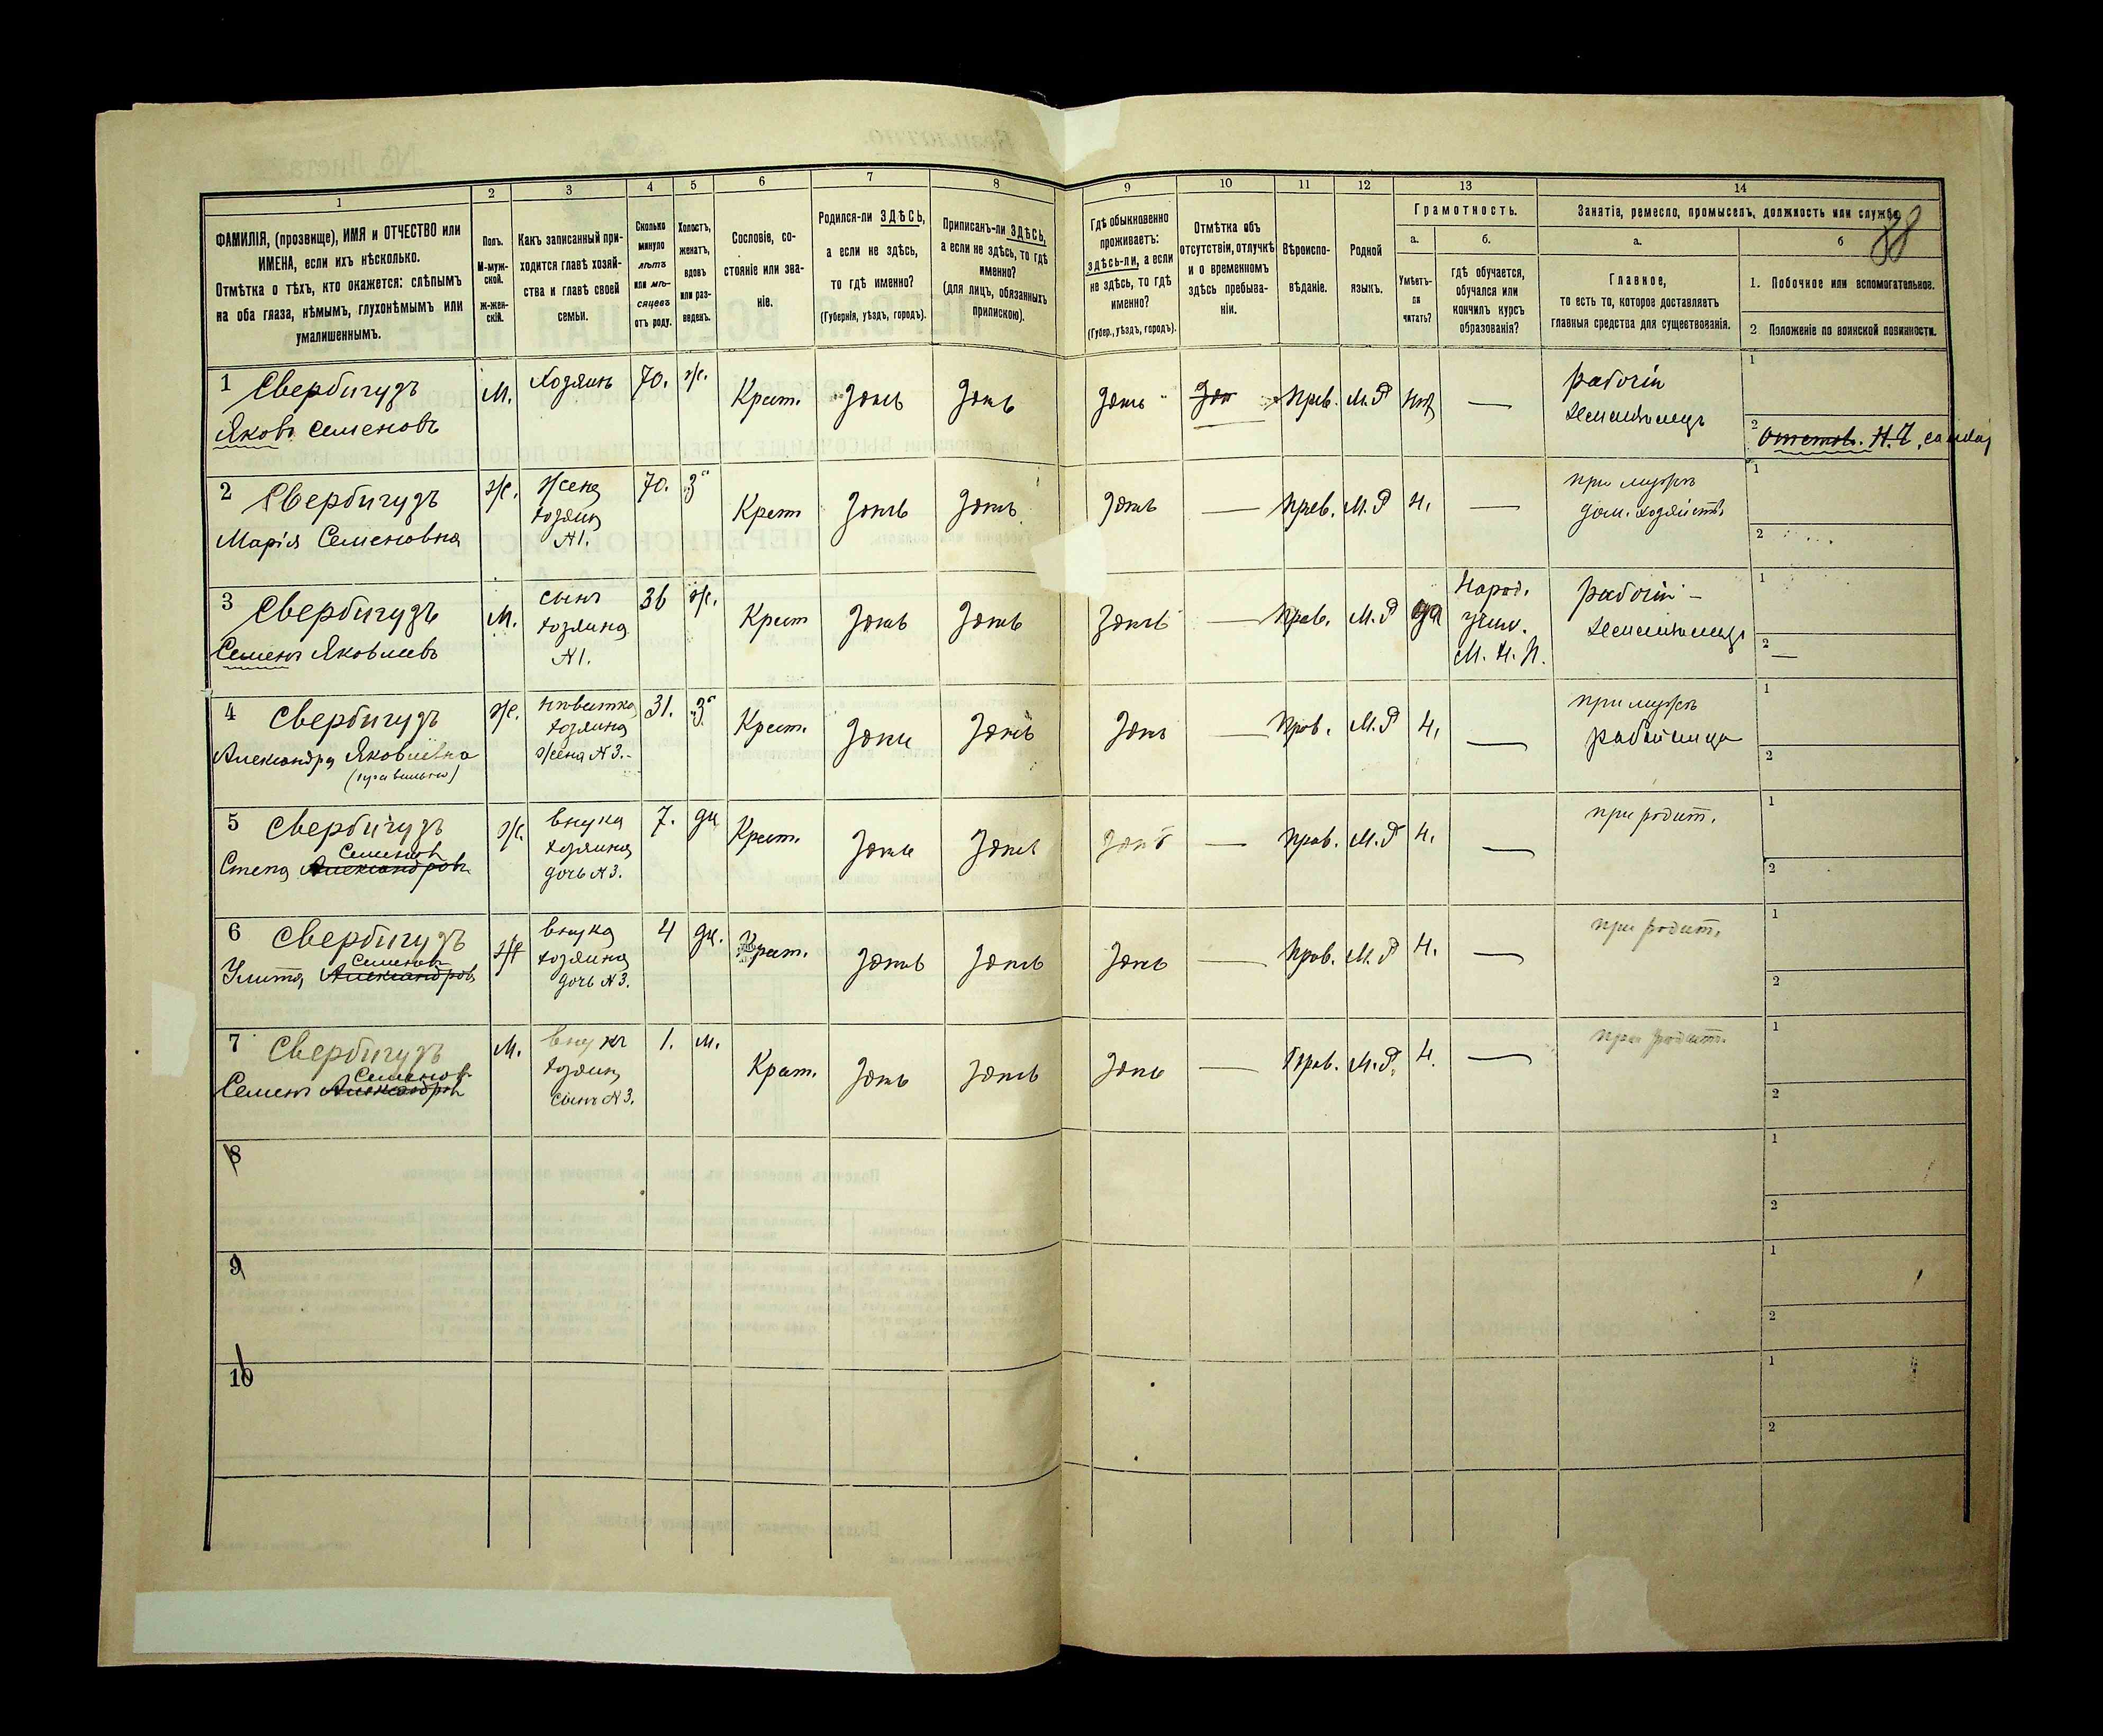 88
1 2 3 4 5 6 7 8 9 10 11 12 13 14
ФАМИЛІЯ, (прозвище), ИМЯ и ОТЧЕСТВО или
ИМЕНА, если ихъ нѣсколько.
Отмѣтка о тѣхъ, кто окажется: слѣпымъ
на оба глаза, нѣмымъ, глухонѣмымъ или
умалишеннымъ.
Полъ.
М-муж-
ской.
Ж-жен-
скій.
Какъ записанный при-
ходится главѣ хозяй-
ства и главѣ своей
семьи.
Сколько
минуло
лѣтъ
или мѣ-
сяцевъ
отъ роду.
Холостъ,
женатъ,
вдовъ
или раз-
веденъ.
Сословіе, со-
стояніе или зва-
ніе.
Родился-ли ЗДѢСЬ,
а если не здѣсь,
то гдѣ именно?
(Губернія, уѣздъ, городъ).
Приписанъ-ли ЗДѢСЬ,
а если не здѣсь, то гдѣ
именно?
(для лицъ, обязанныхъ
припискою).
Гдѣ обыкновенно
проживаетъ:
здѣсь-ли, а если
не здѣсь, то гдѣ
именно?
(Губер., уѣздъ, городъ).
Отмѣтка объ
отсутствіи, отлучкѣ
и о временномъ
здѣсь пребыва-
ніи.
Вѣроиспо-
вѣданіе.
Родной
языкъ.
Грамотность.
а.
Умѣетъ-
ли
читать?
б.
гдѣ обучается,
обучался или
кончилъ курсъ
образованія?
Занятія, ремесло, промыселъ, должность или служба.
а.
Главное,
то есть то, которое доставляетъ
главныя средства для существованія.
б
1. Побочное или вспомогательное.
2 Положеніе по воинской повинности.
1 Свербигузъ
Яковъ Семеновъ
М.
Хозяинъ
70.
ж.
Крест.
Здѣсь
Здѣсь
Здѣсь
Прав.
М.Р
нѣт
—
рабочій
земледѣлецъ
1
2
2 Свербигузъ
Марія Семеновна
ж.
жена
хозяина
N1.
70.
"З"
Крест
Здѣсь
Здѣсь
Здѣсь
—
Прав.
М.Р
н.
—
при мужѣ
дом. хозяйств.
1
2
3 Свербигузъ
Семенъ Яковлевъ
М.
сынъ
хозяина
N1.
36
ж.
Крест
Здѣсь
Здѣсь
Здѣсь
—
Прав.
М.Р
да
Народ.
учил.
М. Н. П.
рабочій -
земледѣлецъ
1
2 —
4 Свербигузъ
Александра Яковлевна
(правильно)
ж.
невѣстка
хозяина
жена N3.-
31.
"З"
Крест.
Здѣсь
Здѣсь
Здѣсь
—
Прав.
М.Р
н.
—
при мужѣ
работница
1
2
5 Свербигузъ
Семенов
Степа Александров
ж.
внука
хозяина
дочь N3.
7.
дц
Крест.
Здѣсь
Здѣсь
Здѣсь
—
Прав.
М.Р
н.
—
при родит.
1
2
6 Свербигузъ
Семенов
Улита Александров
ж
внука
хозяина
дочь N3.
4
дц.
Крест.
Здѣсь
Здѣсь
Здѣсь
—
Прав.
М.Р
н.
—
при родит.
1
2
7 Свербигузъ
Семенов
Семенъ Александров
М.
внукъ
хозяина
сынъ N3.
1.
м.
Крест.
Здѣсь
Здѣсь
Здѣсь
—
Прав.
М.Р.
н.
—
при родит.
1
2
8
1
2
9
1
2
10
1
2